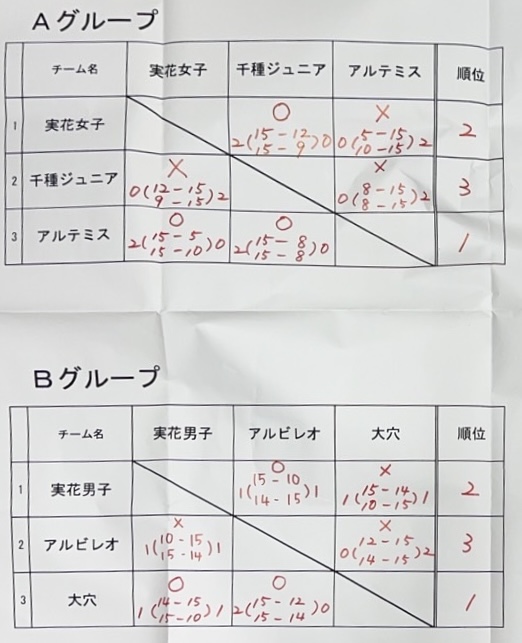 Aグループ
チーム名 実花女子 千種ジュニア アルテミス 順位
1 実花女子 ○ 2(15-12 15-9)0 × 0(5-15 10-15)2 2
2 千種ジュニア × 0(12-15 9-15)2 × 0(8-15 8-15)2 3
3 アルテミス ○ 2(15-5 15-10)0 ○ 2(15-8 15-8)0 1
Bグループ
チーム名 実花男子 アルビレオ 大穴 順位
1 実花男子 ○ 1(15-10 14-15)1 × 1(15-14 10-15)1 2
2 アルビレオ × 1(10-15 15-14)1 × 0(12-15 14-15)2 3
3 大穴 ○ 1(14-15 15-10)1 ○ 2(15-12 15-14)0 1